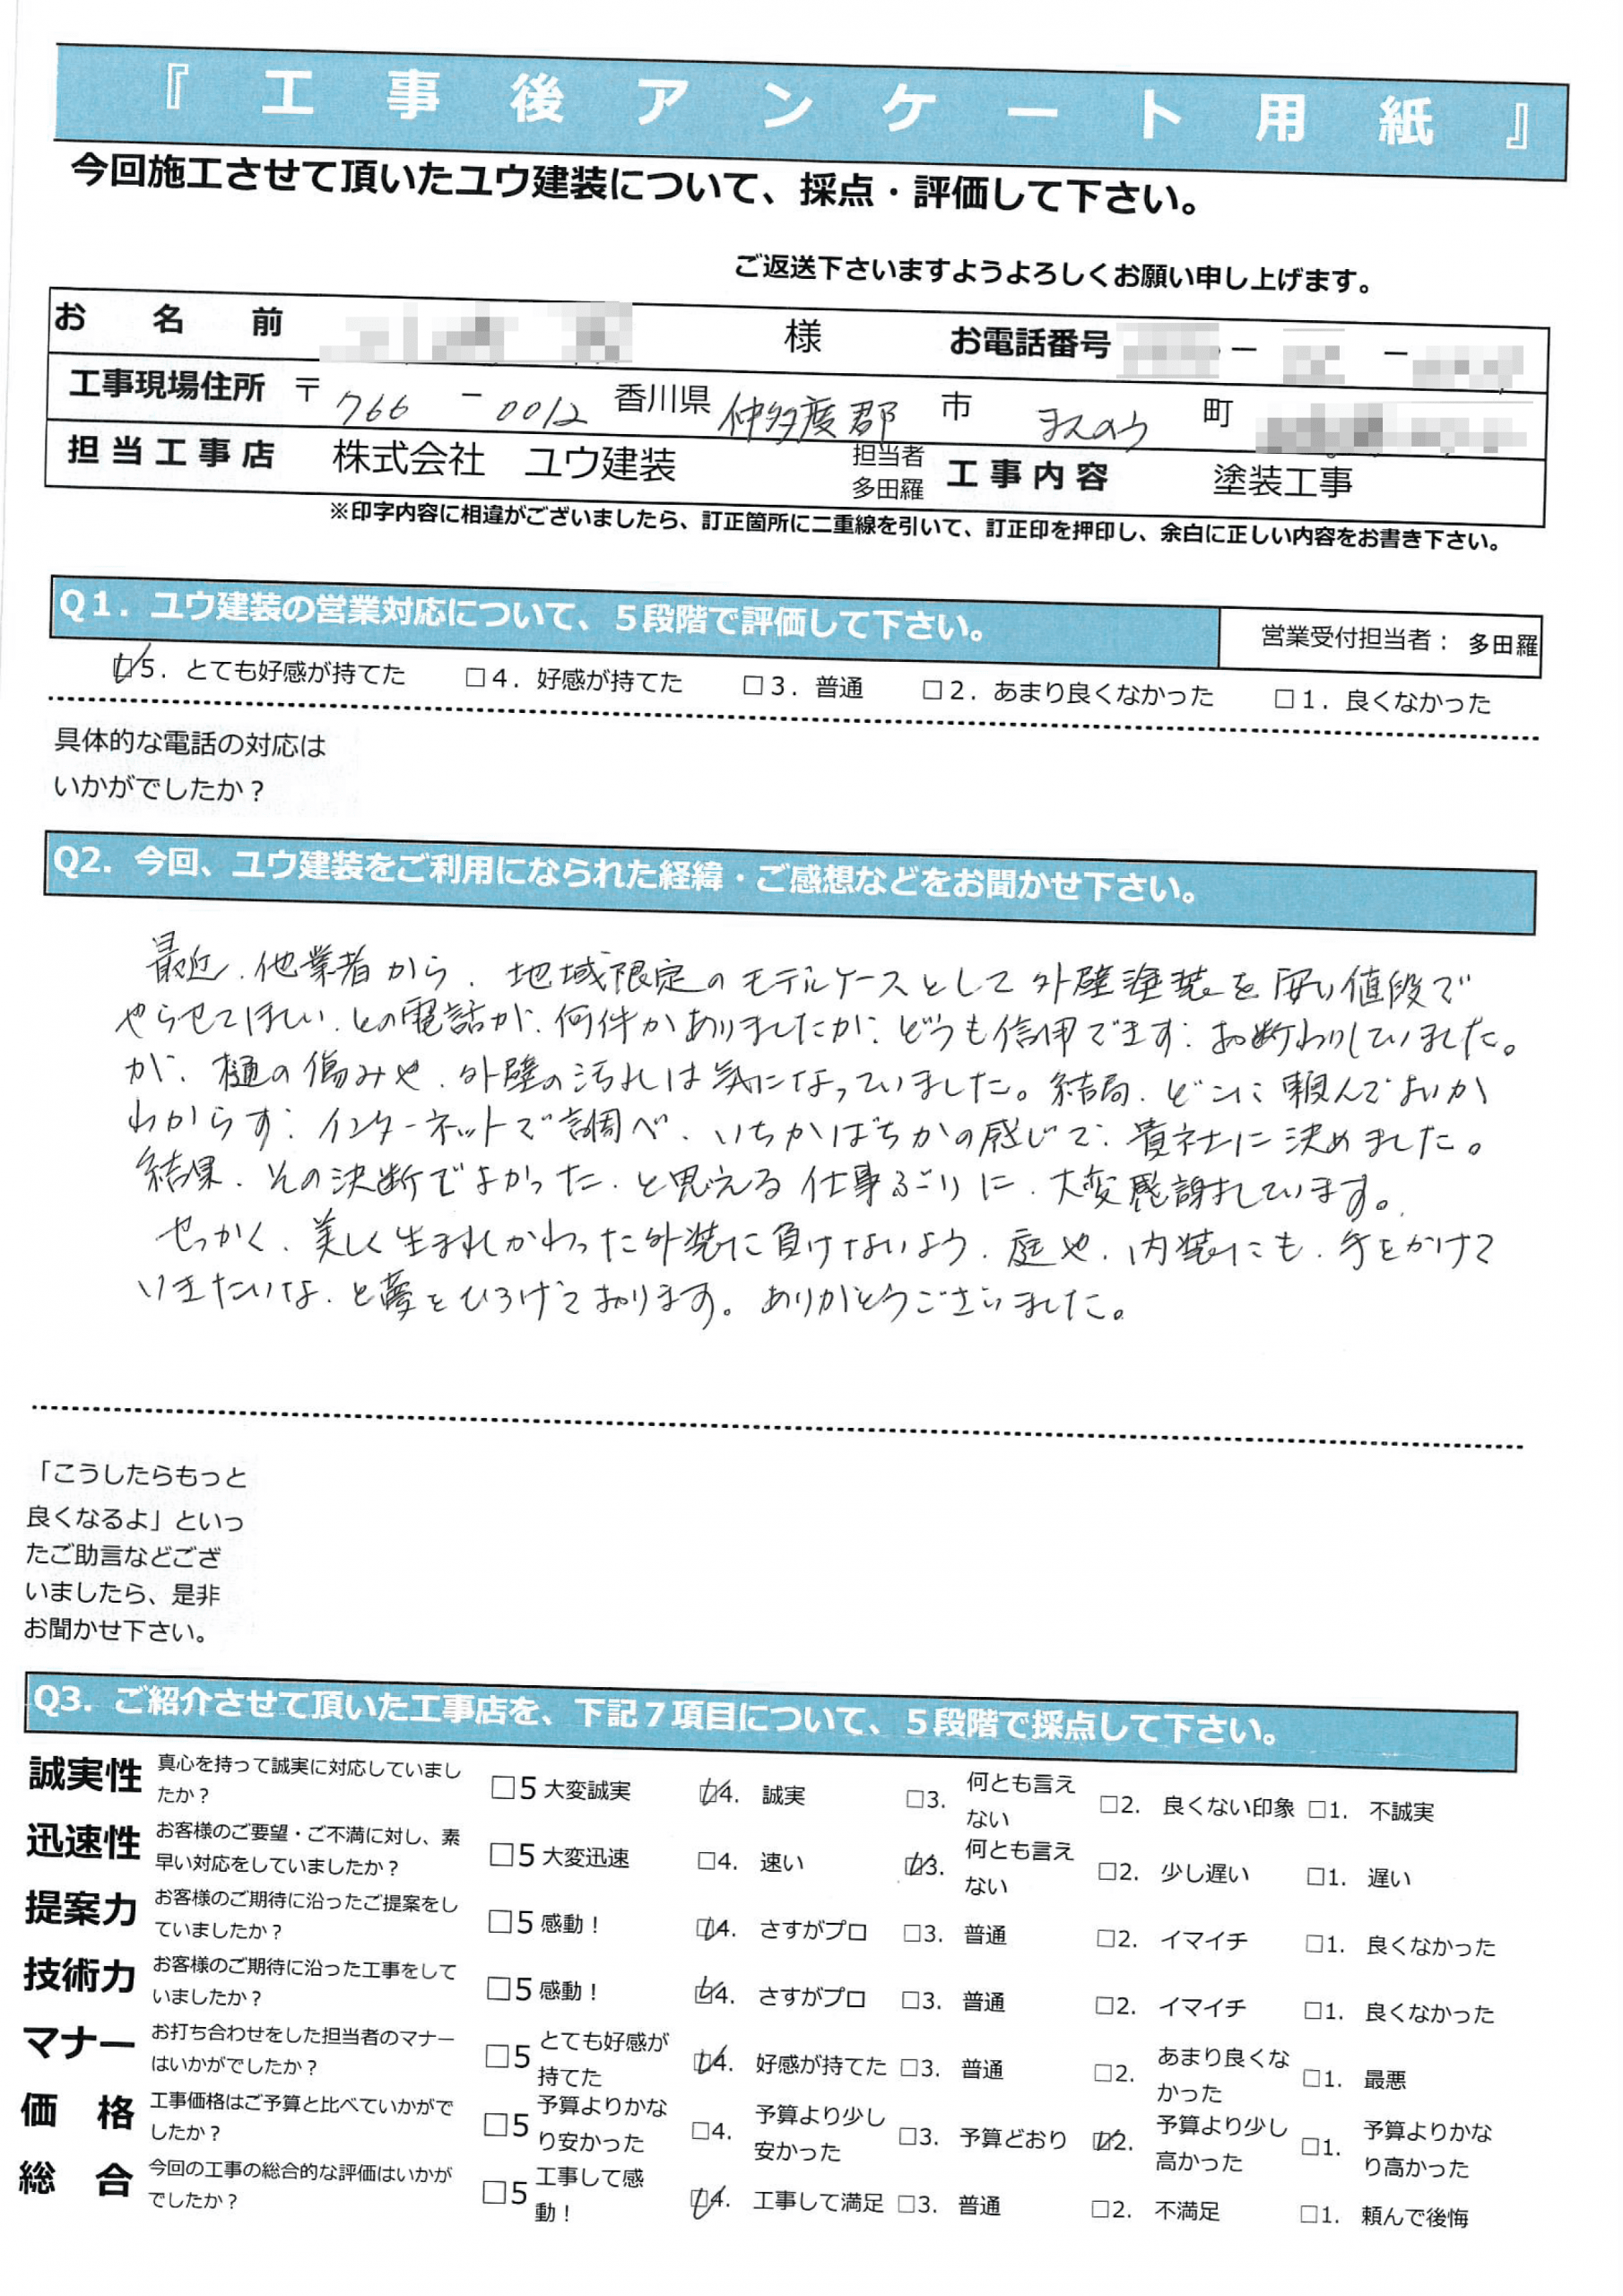 『工事後アンケート用紙』
今回施工させて頂いたユウ建装について、採点・評価して下さい。
ご返送下さいますようよろしくお願い申し上げます。
お名前 様 お電話番号 － －
工事現場住所 〒766－0012 香川県 仲多度郡 市 まんのう 町
担当工事店 株式会社 ユウ建装 担当者 多田羅 工事内容 塗装工事
※印字内容に相違がございましたら、訂正箇所に二重線を引いて、訂正印を押印し、余白に正しい内容をお書き下さい。
Q1．ユウ建装の営業対応について、５段階で評価して下さい。 営業受付担当者： 多田羅
☑5．とても好感が持てた □4．好感が持てた □3．普通 □2．あまり良くなかった □1．良くなかった
具体的な電話の対応は
いかがでしたか？
Q2．今回、ユウ建装をご利用になられた経緯・ご感想などをお聞かせ下さい。
最近、他業者から、地域限定のモデルケースとして外壁塗装を安い値段で
やらせてほしい、との電話が、何件かありましたが、どうも信用できず、お断わりしていました。
が、樋の傷みや、外壁の汚れは気になっていました。結局、どこに頼んでよいか
わからず、インターネットで調べ、いちかばちかの感じで、貴社に決めました。
結果、その決断でよかった、と思える仕事ぶりに、大変感謝しています。
せっかく、美しく生まれかわった外装に負けないよう、庭や、内装にも、手をかけて
いきたいな、と夢をひろげております。ありがとうございました。
「こうしたらもっと
良くなるよ」といっ
たご助言などござ
いましたら、是非
お聞かせ下さい。
Q3．ご紹介させて頂いた工事店を、下記７項目について、５段階で採点して下さい。
誠実性 真心を持って誠実に対応していましたか？ □5 大変誠実 ☑4. 誠実 □3. 何とも言えない □2. 良くない印象 □1. 不誠実
迅速性 お客様のご要望・ご不満に対し、素早い対応をしていましたか？ □5 大変迅速 □4. 速い ☑3. 何とも言えない □2. 少し遅い □1. 遅い
提案力 お客様のご期待に沿ったご提案をしていましたか？ □5 感動！ ☑4. さすがプロ □3. 普通 □2. イマイチ □1. 良くなかった
技術力 お客様のご期待に沿った工事をしていましたか？ □5 感動！ ☑4. さすがプロ □3. 普通 □2. イマイチ □1. 良くなかった
マナー お打ち合わせをした担当者のマナーはいかがでしたか？ □5 とても好感が持てた ☑4. 好感が持てた □3. 普通 □2. あまり良くなかった □1. 最悪
価格 工事価格はご予算と比べていかがでしたか？ □5 予算よりかなり安かった □4. 予算より少し安かった □3. 予算どおり ☑2. 予算より少し高かった □1. 予算よりかなり高かった
総合 今回の工事の総合的な評価はいかがでしたか？ □5 工事して感動！ ☑4. 工事して満足 □3. 普通 □2. 不満足 □1. 頼んで後悔